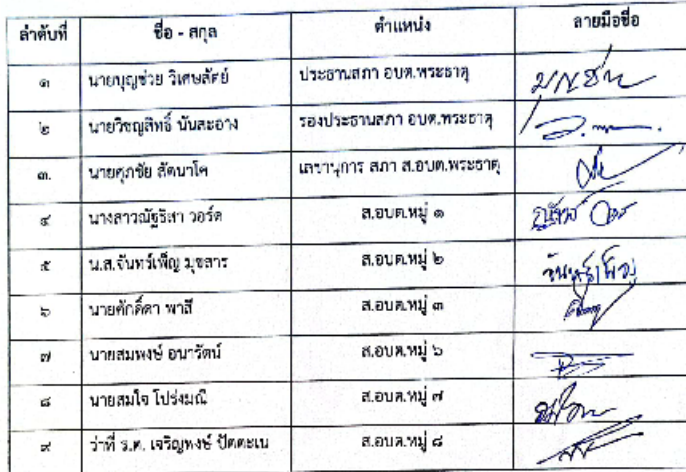 ลำดับที่ ชื่อ - สกุล ตำแหน่ง ลายมือชื่อ
๑ นายบุญช่วย วิเศษสัตย์ ประธานสภา อบต.พระธาตุ บุญช่วย
๒ นายวิชญสิทธิ์ นันสะอาง รองประธานสภา อบต.พระธาตุ
๓. นายศุภชัย สัตนาโค เลขานุการ สภา ส.อบต.พระธาตุ
๔ นางสาวณัฐริสา วอร์ด ส.อบต.หมู่ ๑
๕ น.ส.จันทร์เพ็ญ มุขสาร ส.อบต.หมู่ ๒ จันทร์เพ็ญ
๖ นายศักดิ์ดา พาสี ส.อบต.หมู่ ๓
๗ นายสมพงษ์ อนารัตน์ ส.อบต.หมู่ ๖
๘ นายสมใจ โปร่งมณี ส.อบต.หมู่ ๗
๙ ว่าที่ ร.ต. เจริญพงษ์ ปัตตะเน ส.อบต.หมู่ ๘